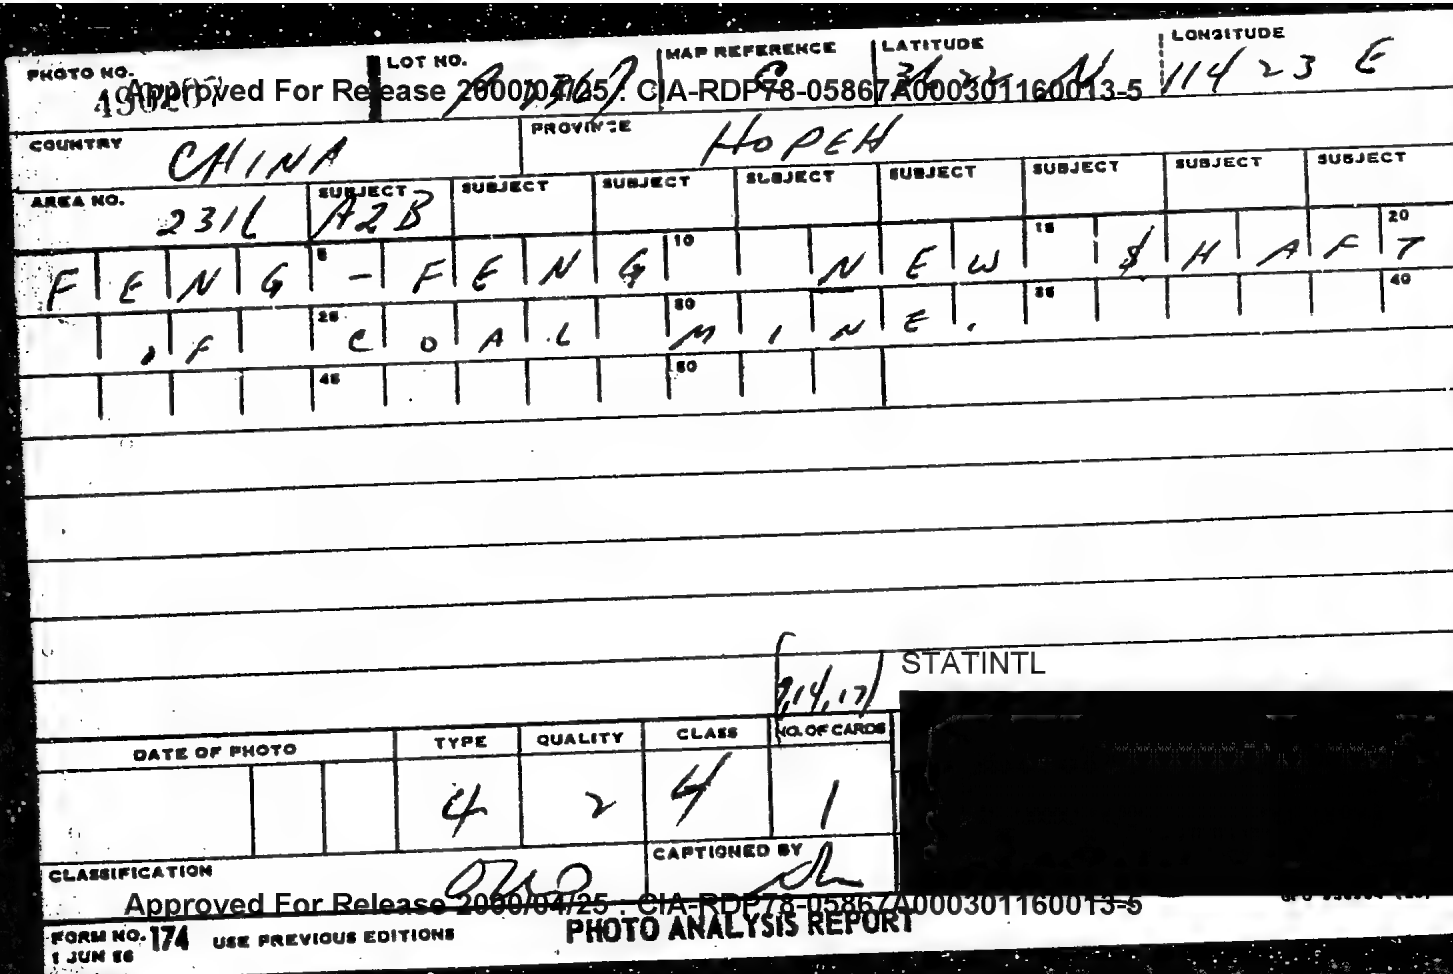 PHOTO NO. LOT NO. MAP REFERENCE LATITUDE LONGITUDE
N 114 23 E
Approved For Release 2000/04/25 : CIA-RDP78-05867A000301160013-5
COUNTRY CHINA PROVINCE HOPEH
AREA NO. SUBJECT SUBJECT SUBJECT SUBJECT SUBJECT SUBJECT SUBJECT SUBJECT
2316 A2B
5 10 15 20
FENG-FENG NEW SHAFT
25 30 35 40
, F COAL MINE.
45 50
STATINTL
9,14,17
DATE OF PHOTO TYPE QUALITY CLASS NO. OF CARDS
4 2 4 1
CLASSIFICATION CAPTIONED BY
Approved For Release 2000/04/25 : CIA-RDP78-05867A000301160013-5
FORM NO. 174 USE PREVIOUS EDITIONS PHOTO ANALYSIS REPORT
1 JUN 56